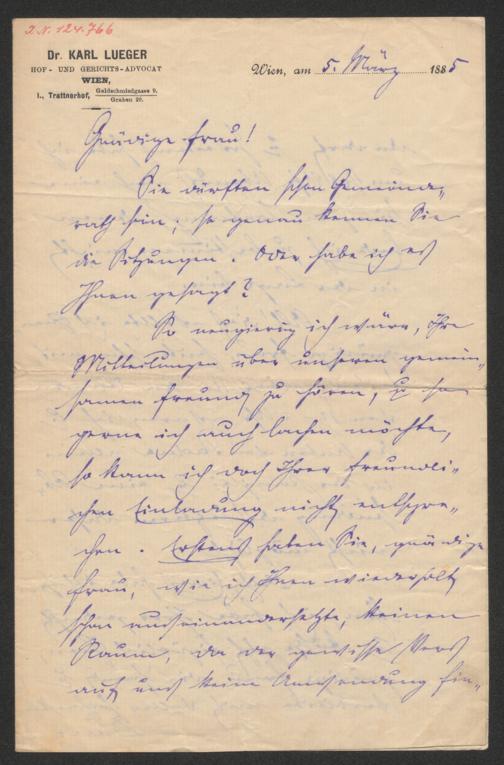 I.N. 124.766
Dr. KARL LUEGER
HOF- UND GERICHTS-ADVOCAT
WIEN,
I., Trattnerhof, Goldschmiedgasse 9.
Graben 29.
Wien, am 5. März 1885
Gnädige Frau!
Sie dürften schon Gemeinde-
rath sein; so genau kennen Sie
die Sitzungen. Oder habe ich es
Ihnen gesagt?
So neugierig ich wäre, Ihre
Mitteilungen über unseren gemein-
samen Freund zu hören, so
gerne ich auch lachen möchte,
so kann ich doch Ihrer freundli-
chen Einladung nicht entspre-
chen. Erstens haben Sie, gnädige
Frau, wie ich Ihnen wiederholt
schon auseinandersetzte, keinen
Raum, da der gewisse Vers
auf uns keine Anwendung fin-